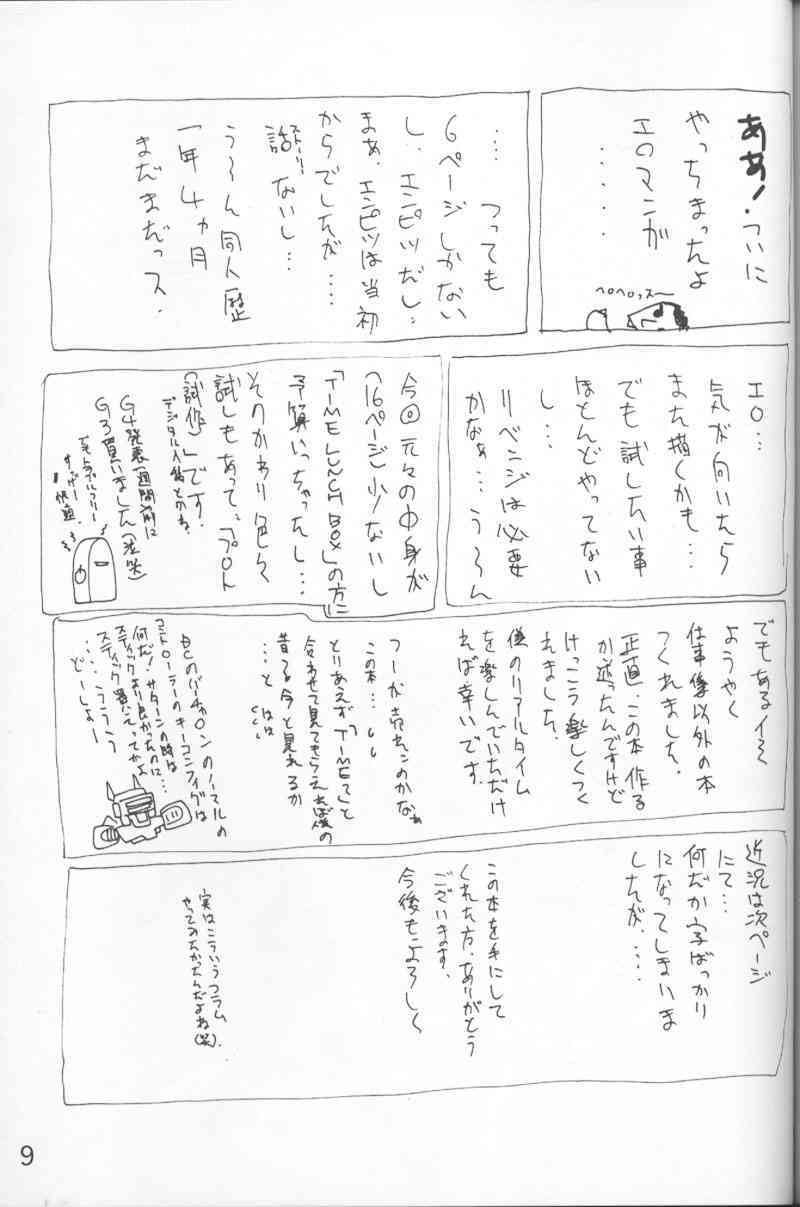 ああ!ついに
やっちまったよ
エロマンガ
.....
ヘロヘロッス〜
… つっても
6ページしかない
し、エンピツだし…
まぁ、エンピツは当初
からでしたが……
話ないし…
ストーリー
う〜ん同人歴
一年4ヵ月
まだまだッス.
エロ…
気が向いたら
また描くかも…
でも試したい事
ほとんどやってない
し…
リベンジは必要
かなぁ…う〜ん
今回元々の中身が
(16ページ)少ないし
「TIME LUNCH BOX」の方に
予算いっちゃったし…
そのかわり色々
試しもあって…「プロト
(試作)」です.
デジタル入稿とかね.
G4発表1週間前に
G3買いました(泣笑)
でもトラブルフリー
快適.
でもある イミ
ようやく
仕事像以外の本
つくれました.
正直、この本作る
か迷ったんですけど
けっこう楽しくつく
れました.
僕のリアルタイム
を楽しんでいただけ
れば幸いです.
つーか売れんのかなぁ
この本…
とりあえず「TIME…」と
合わせて見てもらえれば僕の
昔と今と見れるか
…と
DCのバーチャロンのノーマルの
コントローラーのキーコンフィグは
何だ!サターンの時は
スティックより良かったのに…
スティック買えってかよ
……うううう
どーしよー
近況は次ページ
にて…
何だか字ばっかり
になってしまいま
したが、....
この本を手にして
くれた方、ありがとう
ございます.
今後もよろしく
実はこういうコラム
やってみたかったんだよね(笑).
9